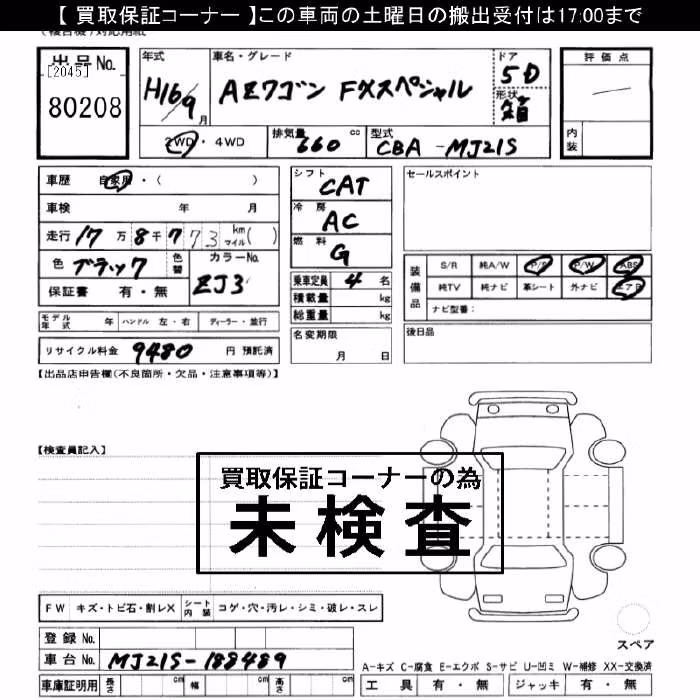 【 買取保証コーナー 】この車両の土曜日の搬出受付は17:00まで
出品No.
[2045]
80208
年式
H16 9月
車名・グレード
AZワゴン FXスペシャル
ドア
5D
形状
箱
評価点
内装
2WD・4WD
排気量
660 cc
型式
CBA-MJ21S
車歴 自家用・( )
車検 年 月
走行 17万8千773 km マイル( )
色 ブラック
色替
カラーNo.
ZJ3
保証書 有・無
モデル年式 年 ハンドル 左・右 ディーラー・並行
リサイクル料金 9480 円 預託済
シフト
CAT
冷房
AC
燃料
G
乗車定員 4 名
積載量 kg
総重量 kg
名変期限
月 日
セールスポイント
装備品
S/R 純A/W P/S P/W ABS
純TV 純ナビ 革シート 外ナビ エアB
ナビ型番：
後日品
【出品店申告欄(不良箇所・欠品・注意事項等)】
【検査員記入】
買取保証コーナーの為
未検査
FW キズ・トビ石・割レX シート内装 コゲ・穴・汚レ・シミ・破レ・スレ
登録No.
車台No. MJ21S-188489
車庫証明用 長さ cm 幅 cm 高さ cm
スペア
A-キズ C-腐食 E-エクボ S-サビ U-凹ミ W-補修 XX-交換済
工具 有・無 ジャッキ 有・無